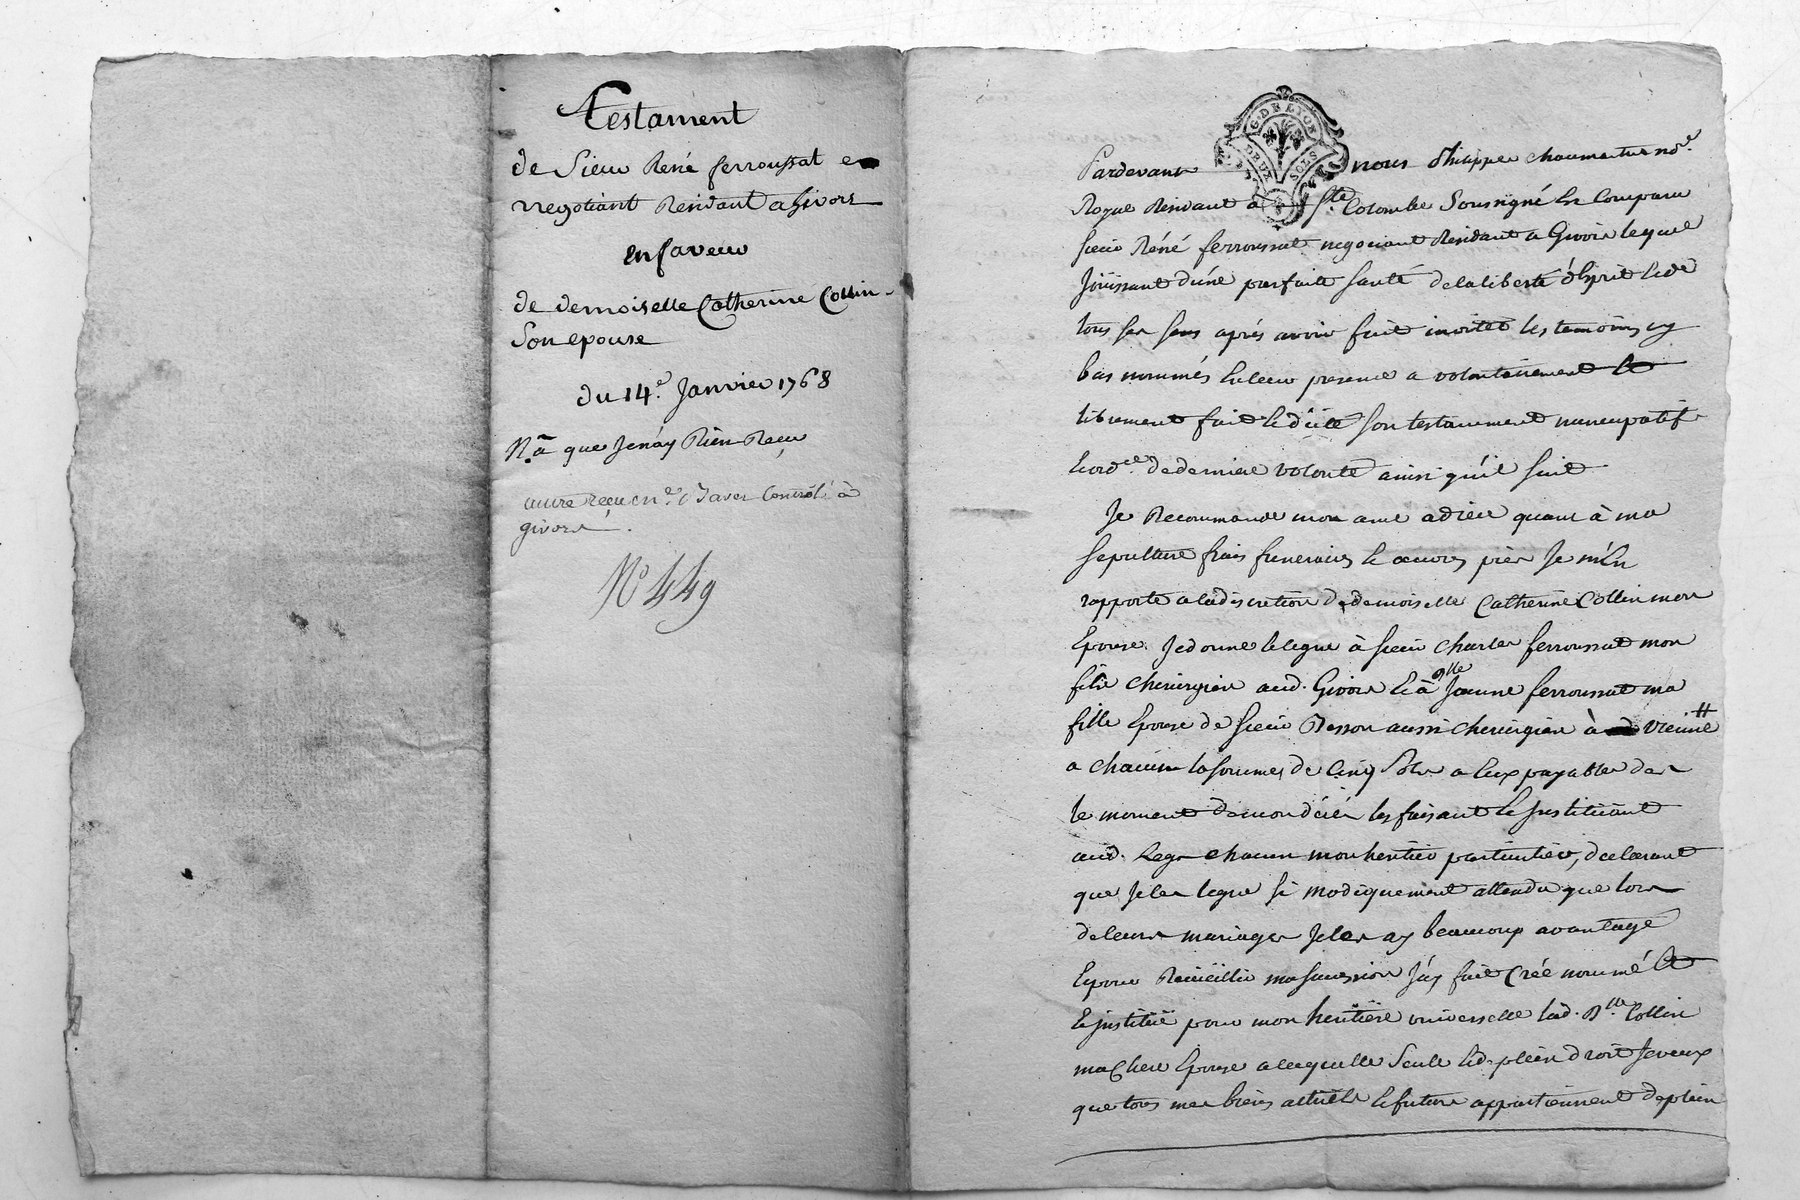 Testament
de Sieur René ferroussat
negotiant Residant a Givors
en faveur
de demoiselle Catherine Collin
Son epouse
du 14.e Janvier 1768
N.a que Jenay Rien Recu
autre recu cn.e Contrôl à
givors.
No 449
G. DE LYON
DEUX SOLS
Pardevant nous Philippe chaumartin no.re
Royal Residant a Ste Colombe Soussigné Est Comparu
Sieur René ferroussat negociant Residant a Givors lequel
Joüissant d'une parfaite Santé de la liberté d'Esprit Et de
tous ses sens après avoir fait inviter les temoins cy
bas nommés En leur presence a volontairement Et
librement fait Et dicté son testament nuncupatif
Et ord.ce de derniere volonté ainsi qu'il suit
Je Recommande mon ame a dieu quant à ma
sepulture frais funeraires Et œuvres pies Je m'En
rapporte a la discretion de demoiselle Catherine Collin mon
Epouse. Je donne Et legue à sieur Charles ferroussat mon
fils chirurgien aud. Givors Et à dlle Jeanne ferroussat ma
fille Epouse de sieur Besson aussi chirurgien à Vienne
a chacun la somme de Cinq Sols a Eux payables des
le moment de mon décés les faisant Et Instituant
aud. Legs chacun mon heritier particulier, declarant
que Je les legue si modiquement attendu que lors
de leurs mariages Je les ay beaucoup avantagé
Et pour Recüeillir ma succession J'ay fait Créé nommé Et
Et institüé pour mon heritiere universelle lad. Dlle Collin
ma Chere Epouse a laquelle Seule Et de plein droit Je veux
que tous mes biens actuels Et futurs appartiennent de plein